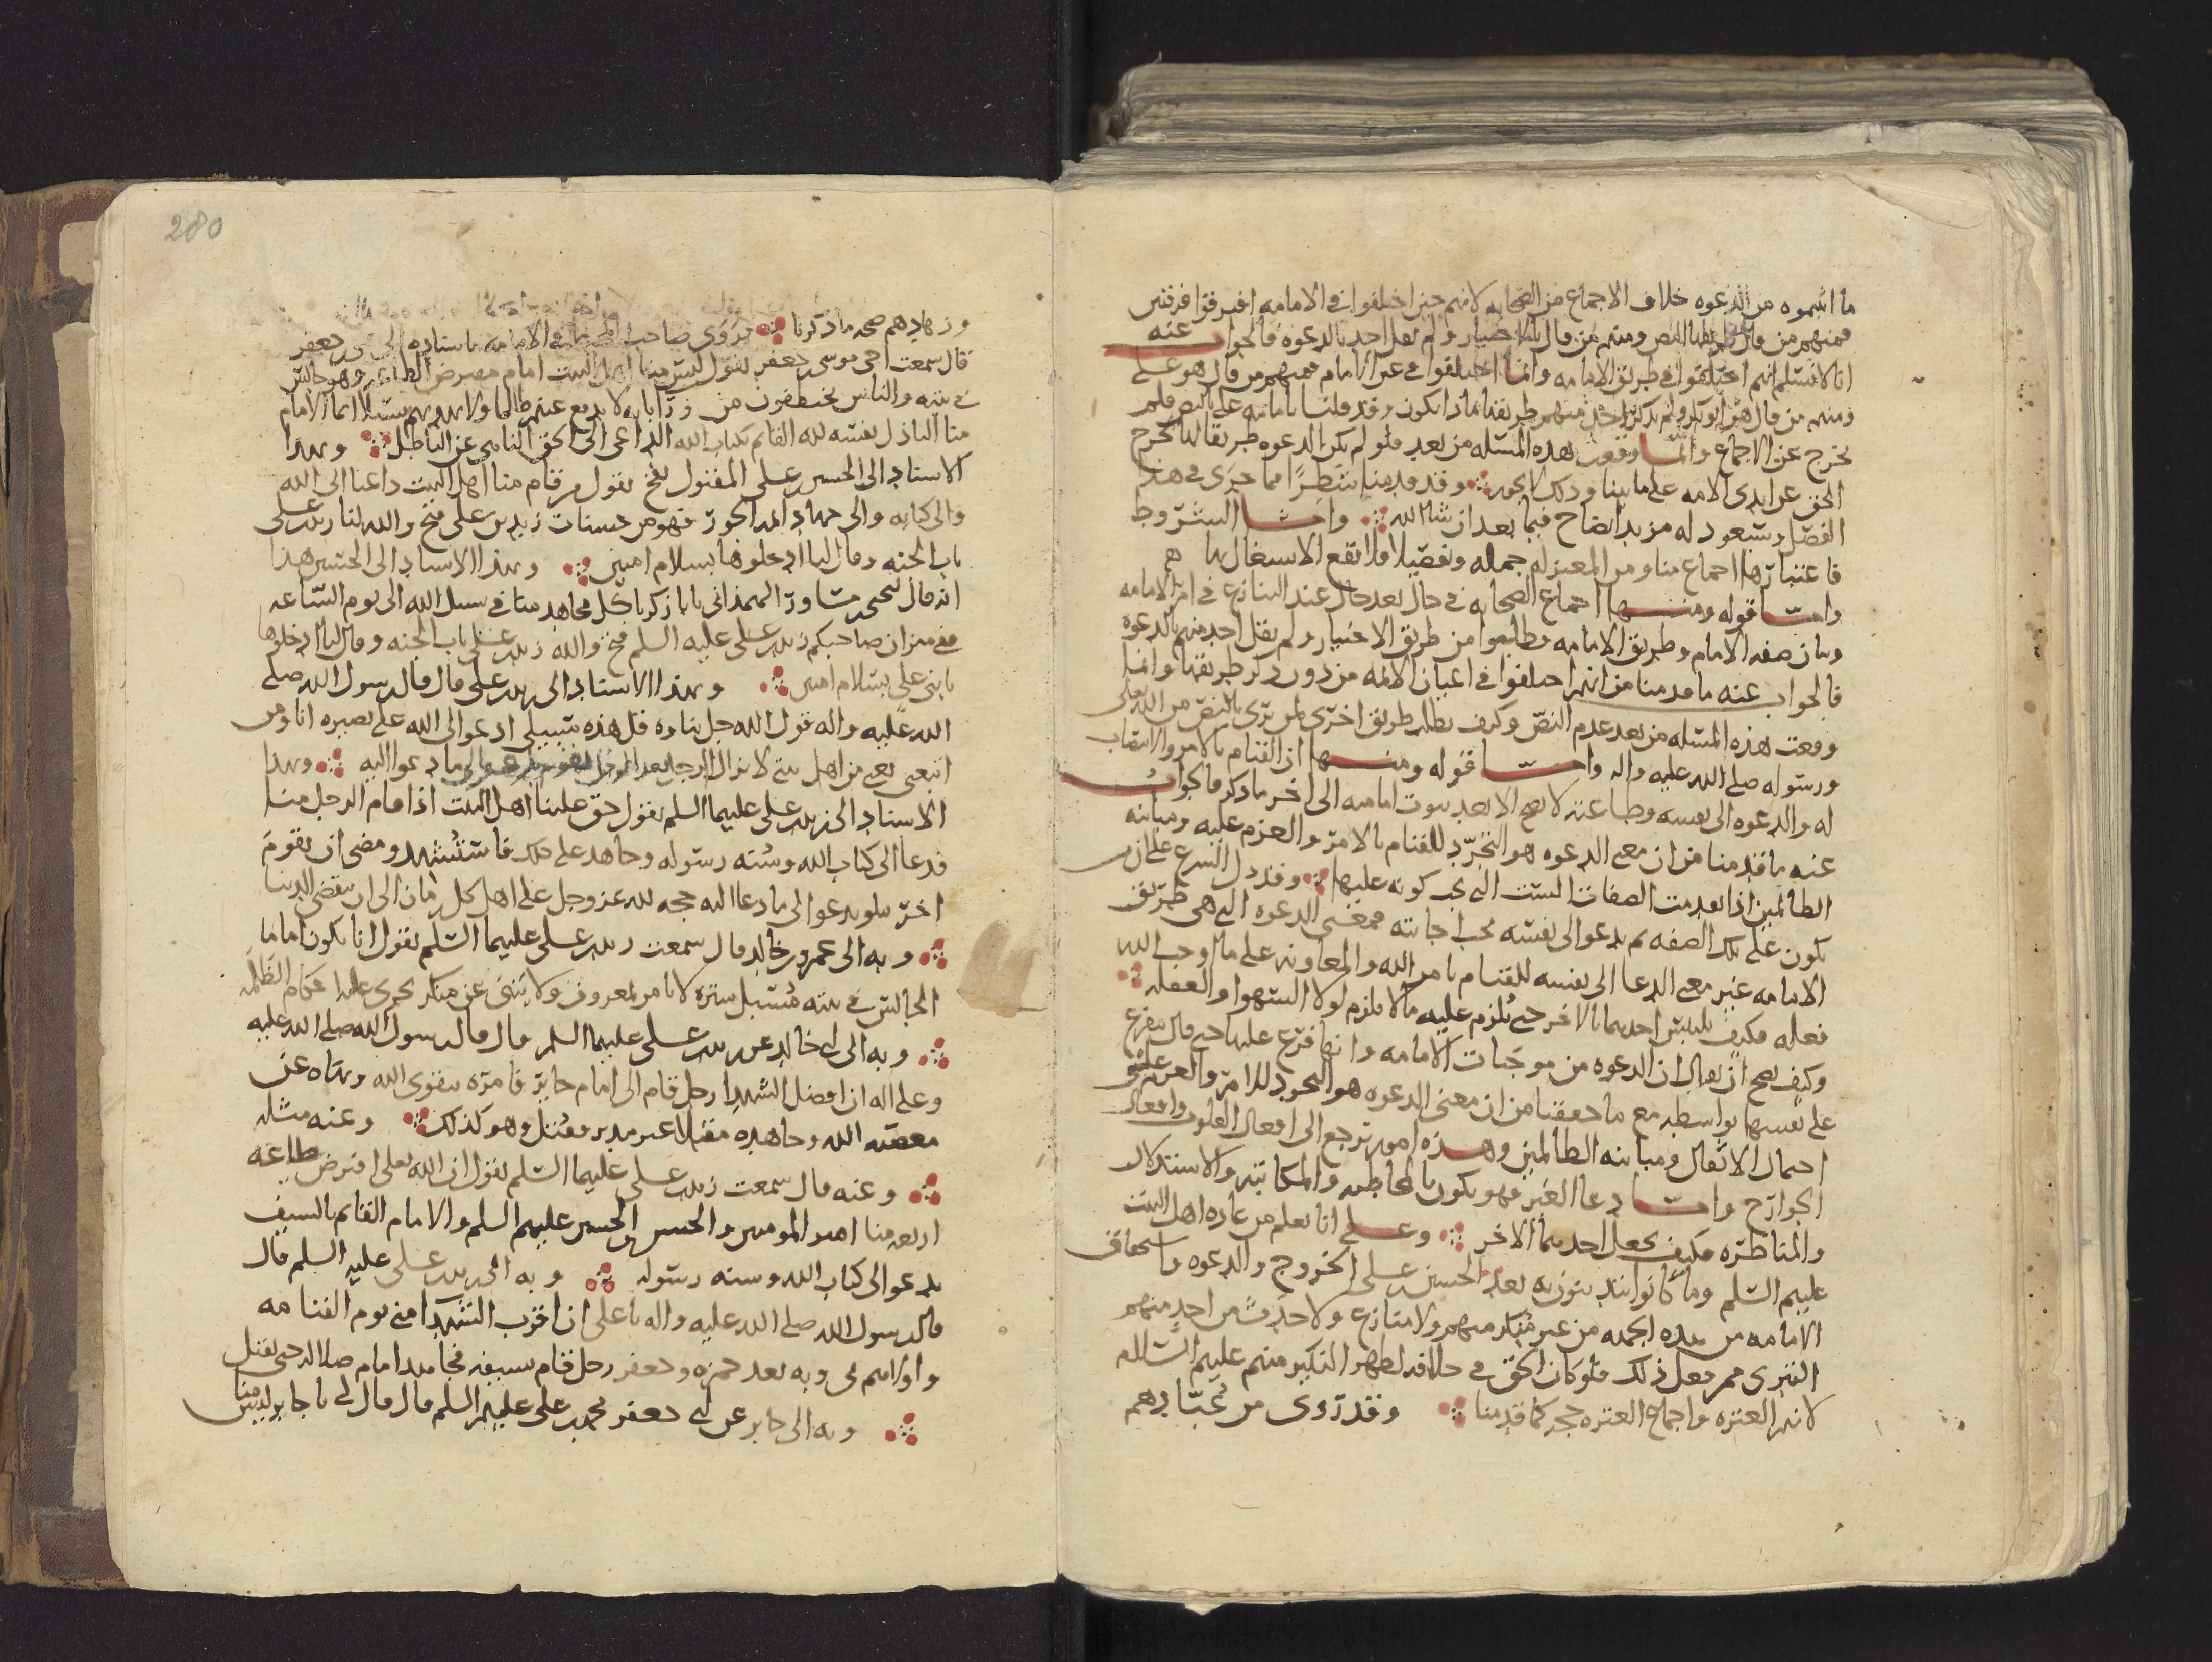 ما اثبتموه من الدعوه خلاف الاجماع من الصحابه لانهم حين اختلفوا في الامامه افترقوا فرقتين
فمنهم من قال النص ومنهم من قال بالاختيار ولم يقل احد بالدعوه فالجواب عنه
انا لا نسلم انهم اختلفوا في طريق الامامه وانما اختلفوا في عين الامام فمنهم من قال هو علي
ومنهم من قال هو ابو بكر ولم يذكر احد منهم طريقا ماذا يكون وقد قلنا بامامه علي بالنص فلم
نخرج عن الاجماع وانما وقعت هذه المسله من بعد فلو لم تكن الدعوه طريقا لها لخرج
الحق عن ايدي الامه على ما بينا وذلك لا يجوز وقد قدمنا شطرا مما جرى في هذا
الفصل وسيعود له مزيد ايضاح فيما بعد ان شا الله واما الشروط
فاعتبارها اجماع منا ومن المعتزله جمله وتفصيلا فلا يقع الاشتغال بها
واما قوله ومنها اجماع الصحابه في حال بعد حال عند التنازع في امر الامامه
وبيان صفه الامام وطريق الامامه وطلبوا من طريق الاختيار ولم يقل احد منهم بالدعوه
فالجواب عنه ما قدمنا من انهم اختلفوا في اعيان الائمه من دون ذكر طريقها وانما
وقعت هذه المسله من بعد عدم النص وكيف يطلب طريق اخرى لمن يرى بالنص من الله تعالى
ورسوله صلى الله عليه واله واما قوله ومنها ان القيام بالامر والانتصاب
له والدعوه الى نفسه وطاعته لا يصح الا بعد ثبوت امامته الى اخر ما ذكر فالجواب
عنه ما قدمنا من ان معنى الدعوه هو التجرد للقيام بالامر والعزم عليه ومباينه
الظالمين اذا تقدمت الصفات الست التي يجب كونه عليها وقد دل الشرع على ان من
يكون على تلك الصفه ثم يدعو الى نفسه تجب اجابته فمعنى الدعوه التي هي طريق
الامامه غير معنى الدعا الى نفسه للقيام بامر الله والمعاونه على ما اوجب الله
فعله فكيف يلتبس احدهما بالاخر حتى يلزم عليه ما لا يلزم لولا السهو والغفله
وكيف يصح ان يقال ان الدعوه من موجبات الامامه وانها فرع عليها حتى قال تتفرع
على نفسها بواسطه مع ما حققنا من ان معنى الدعوه هو التجرد للامر والعزم على
احتمال الاثقال ومباينه الظالمين وهذه امور ترجع الى افعال القلوب وافعال
الجوارح واما دعا الغير فهو يكون بالمخاطبه والمكاتبه والاستدلال
والمناظره فكيف يجعل احدهما الاخر وعلى انا نعلم من عاده اهل البيت
عليهم السلم وما كانوا يتدينون به بعد الحسين بن علي الخروج والدعوه واستحقاق
الامامه من هذه الجهه من غير منكر منهم ولا منازع ولا حدث من احد منهم
التبري ممن فعل ذلك فلو كان الحق في خلافه لظهر النكير منهم عليهم السلم
لانهم العتره واجماع العتره حجه كما قدمنا وقد روى من عبادهم
280
وزهادهم صحه ما ذكرنا يروى صاحب المحيط في الامامه باسناده الى بن جعفر
قال سمعت اخي موسى بن جعفر يقول ليس منا اهل البيت امام مفترض الطاعه وهو جالس
في بيته والناس يختطفون من ورا بابه لا يدفع عنهم ظالما ولا يهديهم سبيلا انما الامام
منا الباذل نفسه لله القائم بكتاب الله الداعي الى الحق الناهي عن الباطل وبهذا
الاسناد الى الحسين بن علي المقتول بفخ يقول من قام منا اهل البيت داعيا الى الله
والى كتابه والى جهاد ائمه الجور فهو من حسنات زيد بن علي فتح والله لنا زيد بن علي
باب الجنه وقال لنا ادخلوها بسلام امنين وبهذا الاسناد الى الحسين هذا
انه قال ليحيى بن مساور الهمذاني يابا زكريا كل مجاهد منا في سبيل الله الى يوم الساعه
ففي ميزان صاحبكم زيد بن علي عليه السلم فتح والله زيد بن علي باب الجنه وقال لنا ادخلوها
يا بني علي بسلام امنين وبهذا الاسناد الى زيد بن علي قال قال رسول الله صلى
الله عليه واله قول الله جل ثناوه قل هذه سبيلي ادعو الى الله على بصيره انا ومن
اتبعني يعني من اهل بيتي لا يزال الرجل بعد الرجل يدعو الى ما دعوا اليه وبهذا
الاسناد الى زيد بن علي عليهما السلم يقول حق علينا اهل البيت اذا قام الرجل منا
فدعا الى كتاب الله وسنه رسوله وجاهد على ذلك فاستشهد ومضى ان يقوم
اخر يتلوه يدعو الى ما دعا اليه حجه لله عز وجل على اهل كل زمان الى ان تنقضي الدنيا
وبه الى عمرو بن خالد قال سمعت زيد بن علي عليهما السلم يقول انا يكون اماما
الجالس في بيته مسبل ستره لا يامر بالمعروف ولا ينهى عن منكر يجري عليه احكام الظلمه
وبه الى ابي خالد عن زيد بن علي عليهما السلم قال قال رسول الله صلى الله عليه
وعلى اله ان افضل الشهدا رجل قام الى امام جائر فامره بتقوى الله ونهاه عن
معصيه الله وجاهده مقبلا غير مدبر فقتل وهو كذلك وعنه مثله
وعنه قال سمعت زيد بن علي عليهما السلم يقول ان الله تعالى افترض طاعه
اربعه منا امير المومنين والحسن والحسين عليهم السلم والامام القائم بالسيف
يدعو الى كتاب الله وسنه رسوله وبه الى زيد بن علي عليه السلم قال
قال رسول الله صلى الله عليه واله يا علي ان اقرب الشهدا مني يوم القيامه
واولاهم بي وبه بعد حمزه وجعفر رجل قام بسيفه فجاهد امام ضلاله حتى يقتل
وبه الى جابر عن ابي جعفر محمد بن علي عليهم السلم قال قال لي يا جابر ليس منا